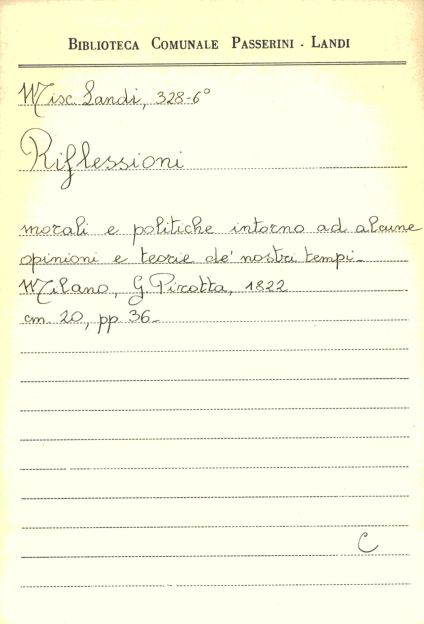 BIBLIOTECA COMUNALE PASSERINI - LANDI
Misc. Landi, 328-6°
Riflessioni
morali e politiche intorno ad alcune
opinioni e teorie de' nostri tempi -
Milano, G. Pirotta, 1822
cm. 20, pp 36 -
C